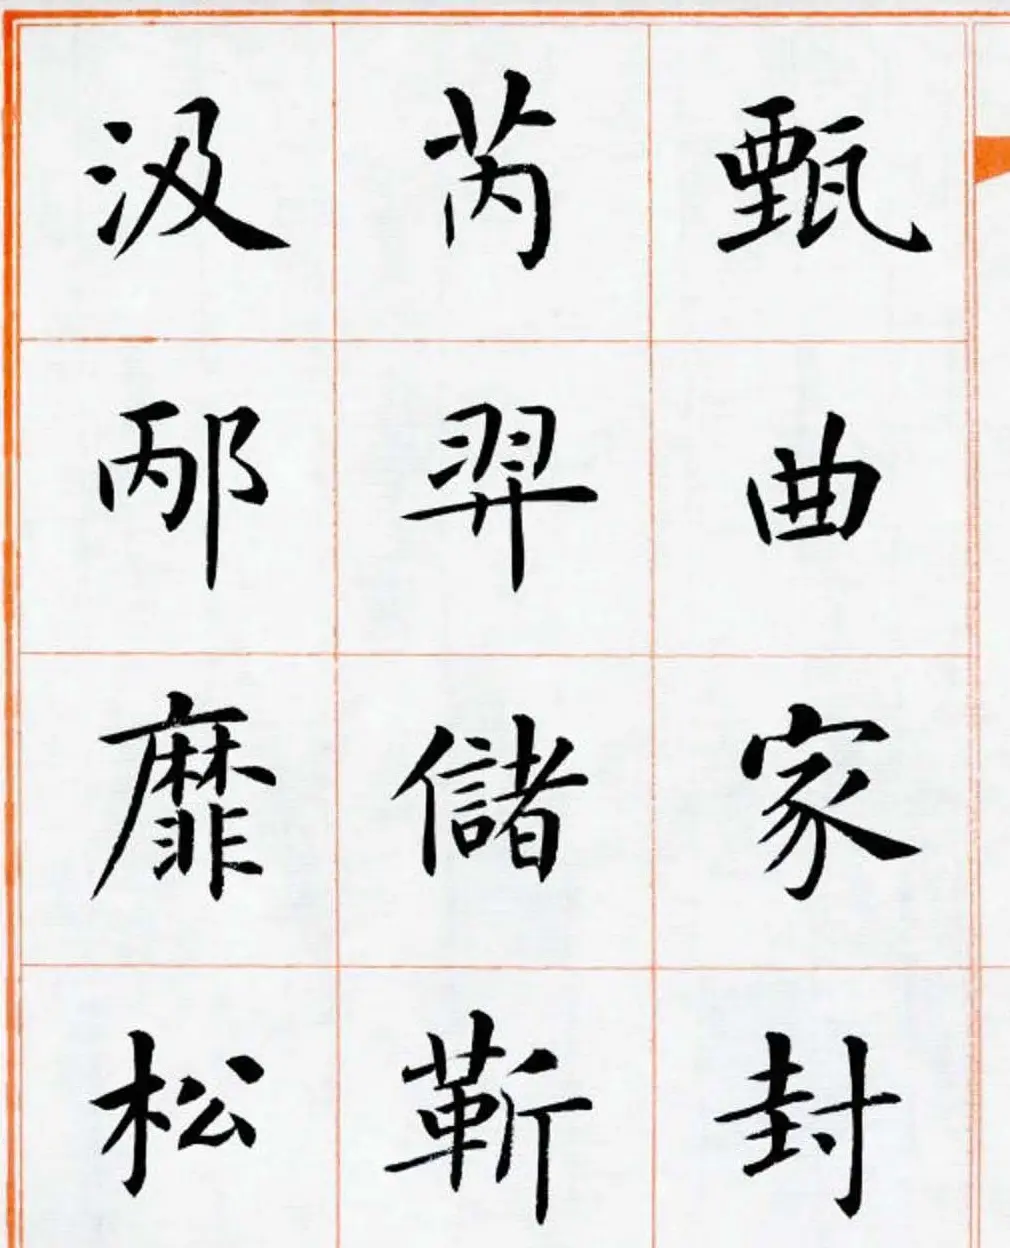 甄曲家封
芮羿儲靳
汲邴靡松